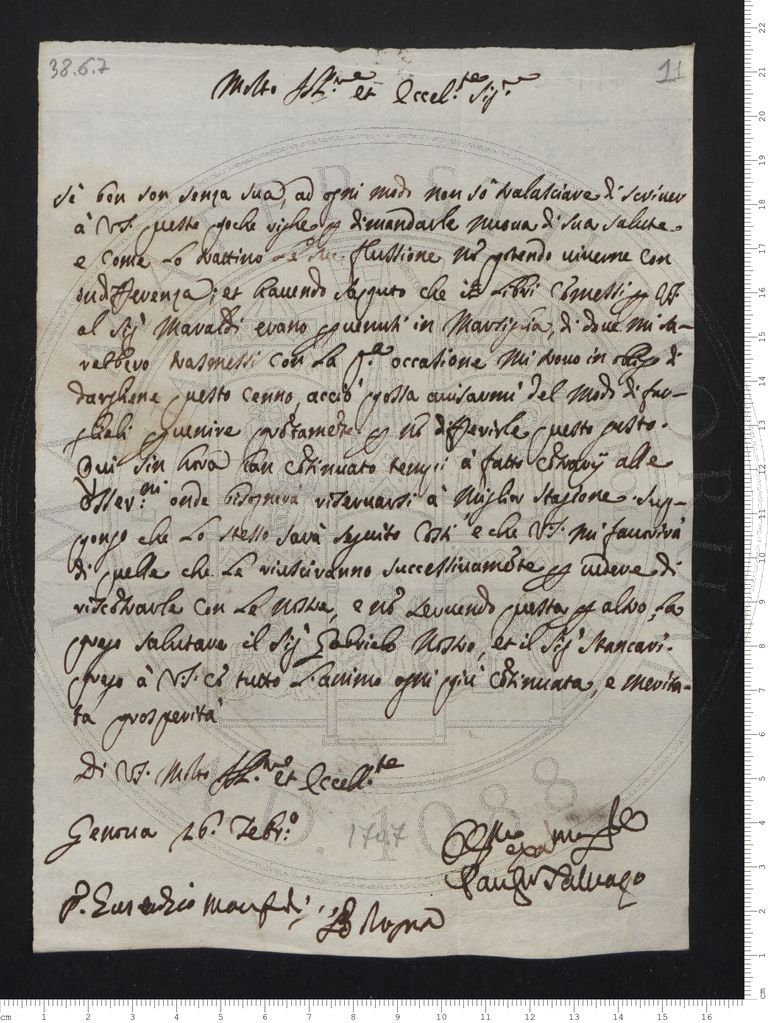 38.6.7
11
Molto Ill.re et Eccel.te Sig.re
Sè ben son senza sua, ad ogni modo non sò tralasciare di scriver
à VS. queste poche righe p dimandarle nuova di sua salute
e come lo trattino le sue flussione nõ potendo viverne con
indifferenza; et havendo saputo che i libri cõmessi p VS.
al Sig.r Maraldi erano pervenuti in Marsiglia, di dove mi sa-
rebbero trasmessi con la p.a occasione mi trovo in obligo di
dargliene questo cenno, acciò possa avisarmi del modo di far-
glieli pervenire prõtamẽte p nõ differirle questo gusto.
Qui sin hora han cõtinuato tempi à fatto cõtrarij alle
Osserv.ni onde bisognerà riservarsi à miglior stagione. Sup-
pongo che lo stesso sarà seguito costì e che VS. mi favorirà
di quelle che le riusciranno successivamẽte p vedere di
riscõtrarle con le nostre, e nõ servendo questa p altro, la
prego salutare il Sig.r Gabriele nostro, et il Sig.r Stancari.
Prego à VS. cõ tutto l'animo ogni più cõtinuata, e merita-
ta prosperità
Di VS. Molto Ill.re et Eccell.te
Genova 26. Febr.o 1707
Paris Salvago
S. Eustachio Manfredi Bologna